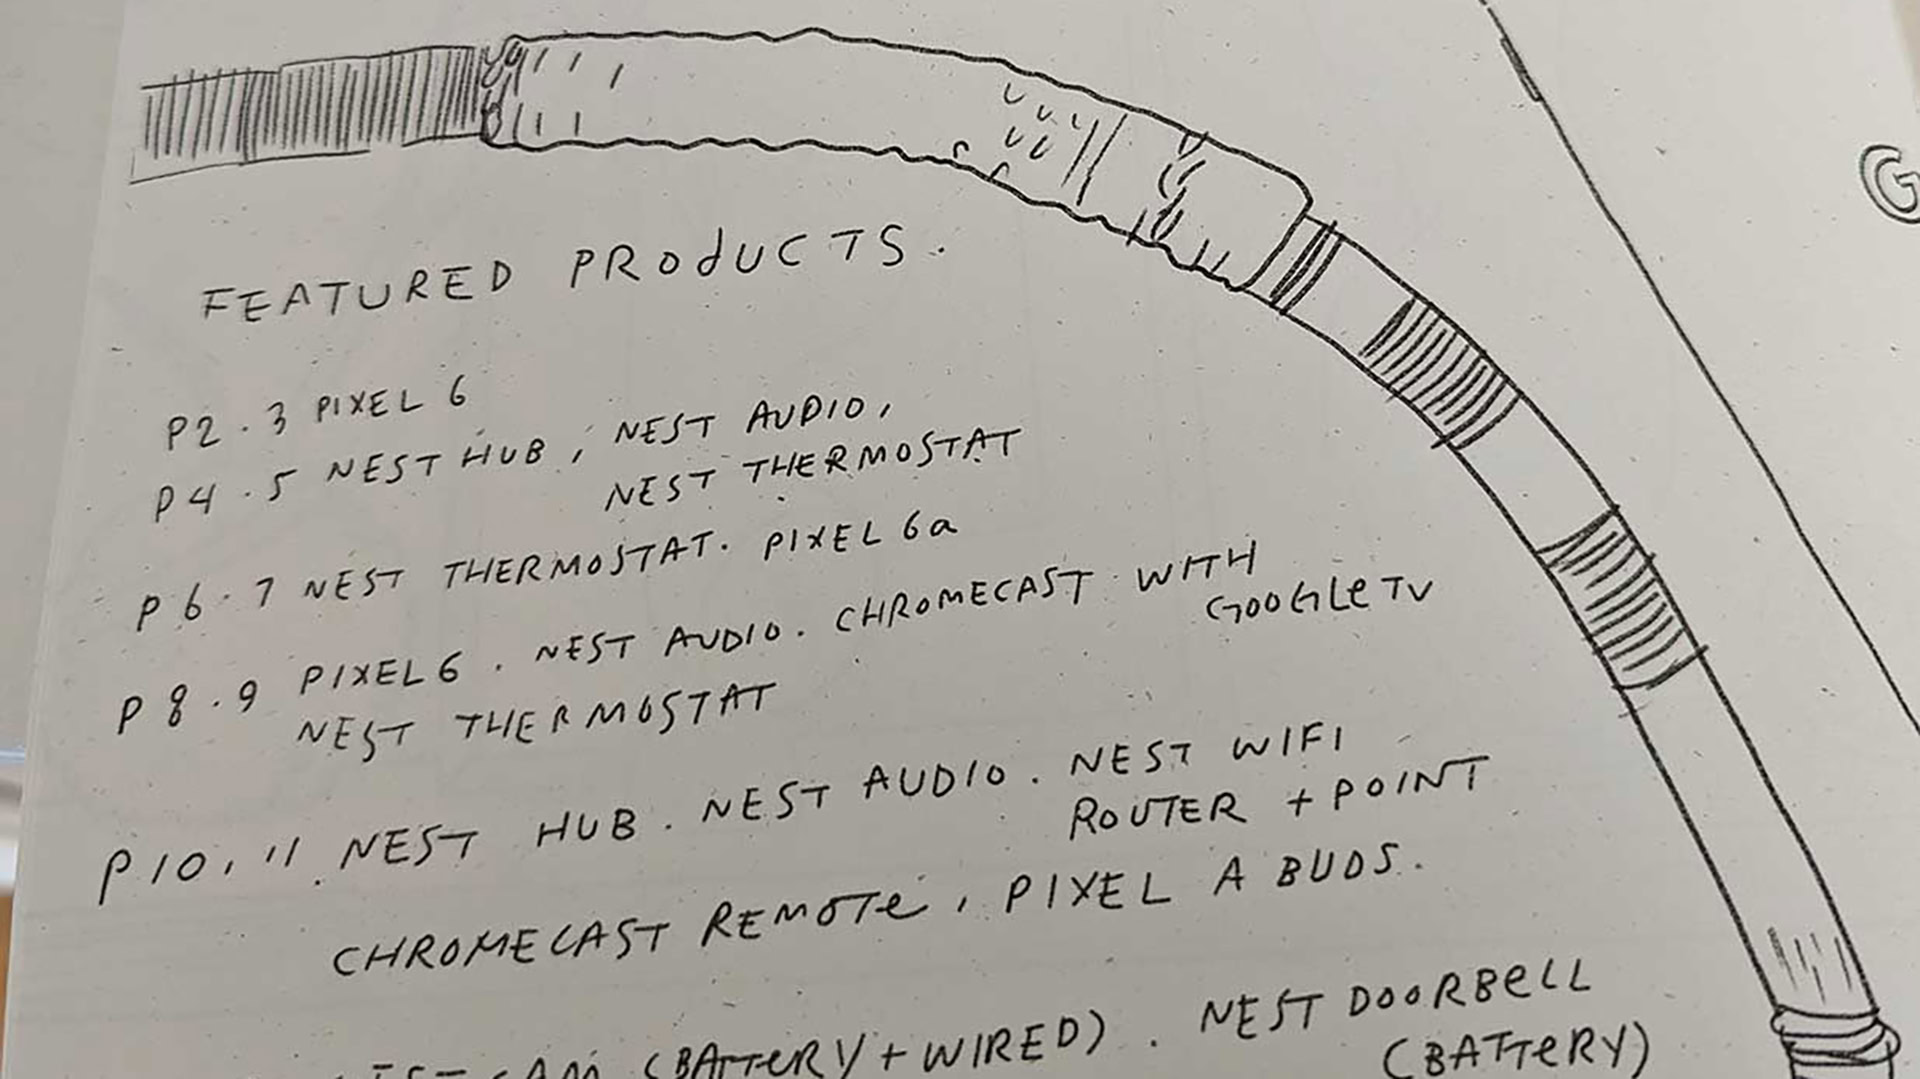 FEATURED PRODUCTS.
P2.3 PIXEL 6
P4.5 NEST HUB, NEST AUDIO,
NEST THERMOSTAT
P6.7 NEST THERMOSTAT. PIXEL 6a
P8.9 PIXEL 6. NEST AUDIO. CHROMECAST WITH
GOOGLE TV
NEST THERMOSTAT
P10, 11. NEST HUB. NEST AUDIO. NEST WIFI
ROUTER + POINT
CHROMECAST REMOTE, PIXEL A BUDS.
(BATTERY + WIRED). NEST DOORBELL
(BATTERY)
G